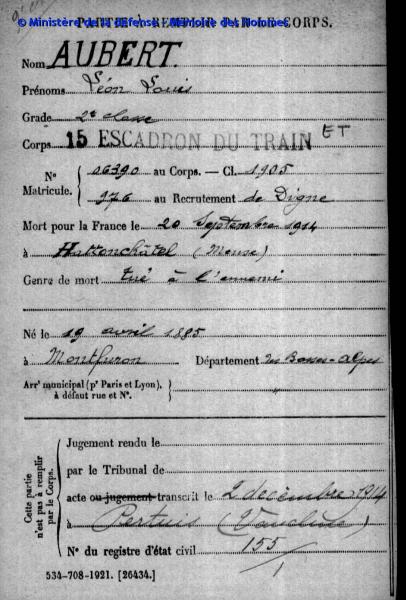 © Ministère de la défense - Mémoire des Hommes
PARTIE À REMPLIR PAR LE CORPS.
Nom AUBERT.
Prénoms Léon Louis
Grade 2e classe
Corps 15 ESCADRON DU TRAIN ET
N° Matricule. { 06390 au Corps. — Cl. 1905
976 au Recrutement de Digne
Mort pour la France le 20 Septembre 1914
à Hattonchâtel (Meuse)
Genre de mort tué à l'ennemi
Né le 19 avril 1885
à Montfuron Département des Basses-Alpes
Arrt municipal (pr Paris et Lyon), à défaut rue et N°. } "
Cette partie n'est pas à remplir par le Corps.
Jugement rendu le
par le Tribunal de
acte ou jugement transcrit le 2 décembre 1914
à Pertuis (Vaucluse)
N° du registre d'état civil 155/1
534-708-1921. [26434.]